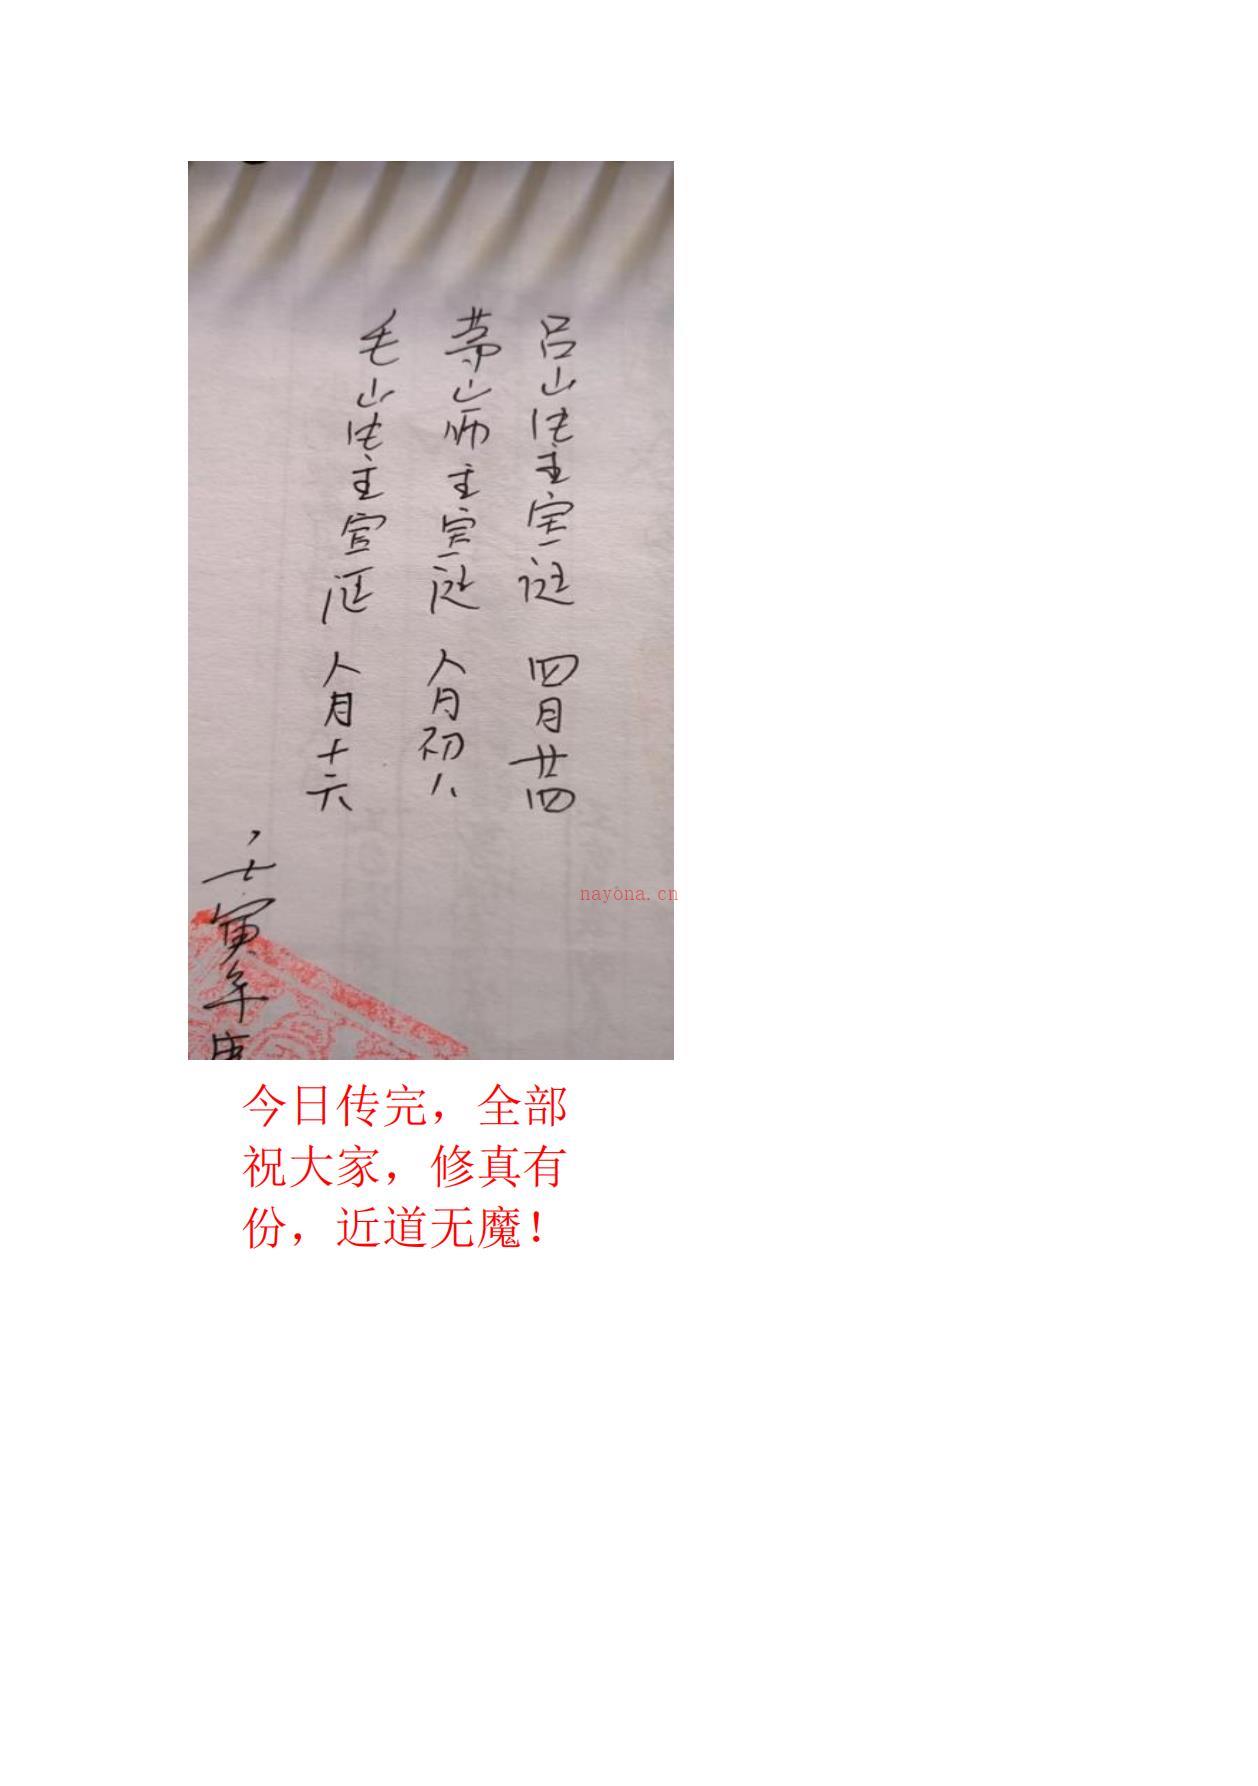 吕山法主宝诞 四月廿四
茅山师主宝诞 八月初八
毛山法主宝诞 八月十六
壬寅年
nayona.cn
今日传完，全部
祝大家，修真有
份，近道无魔！